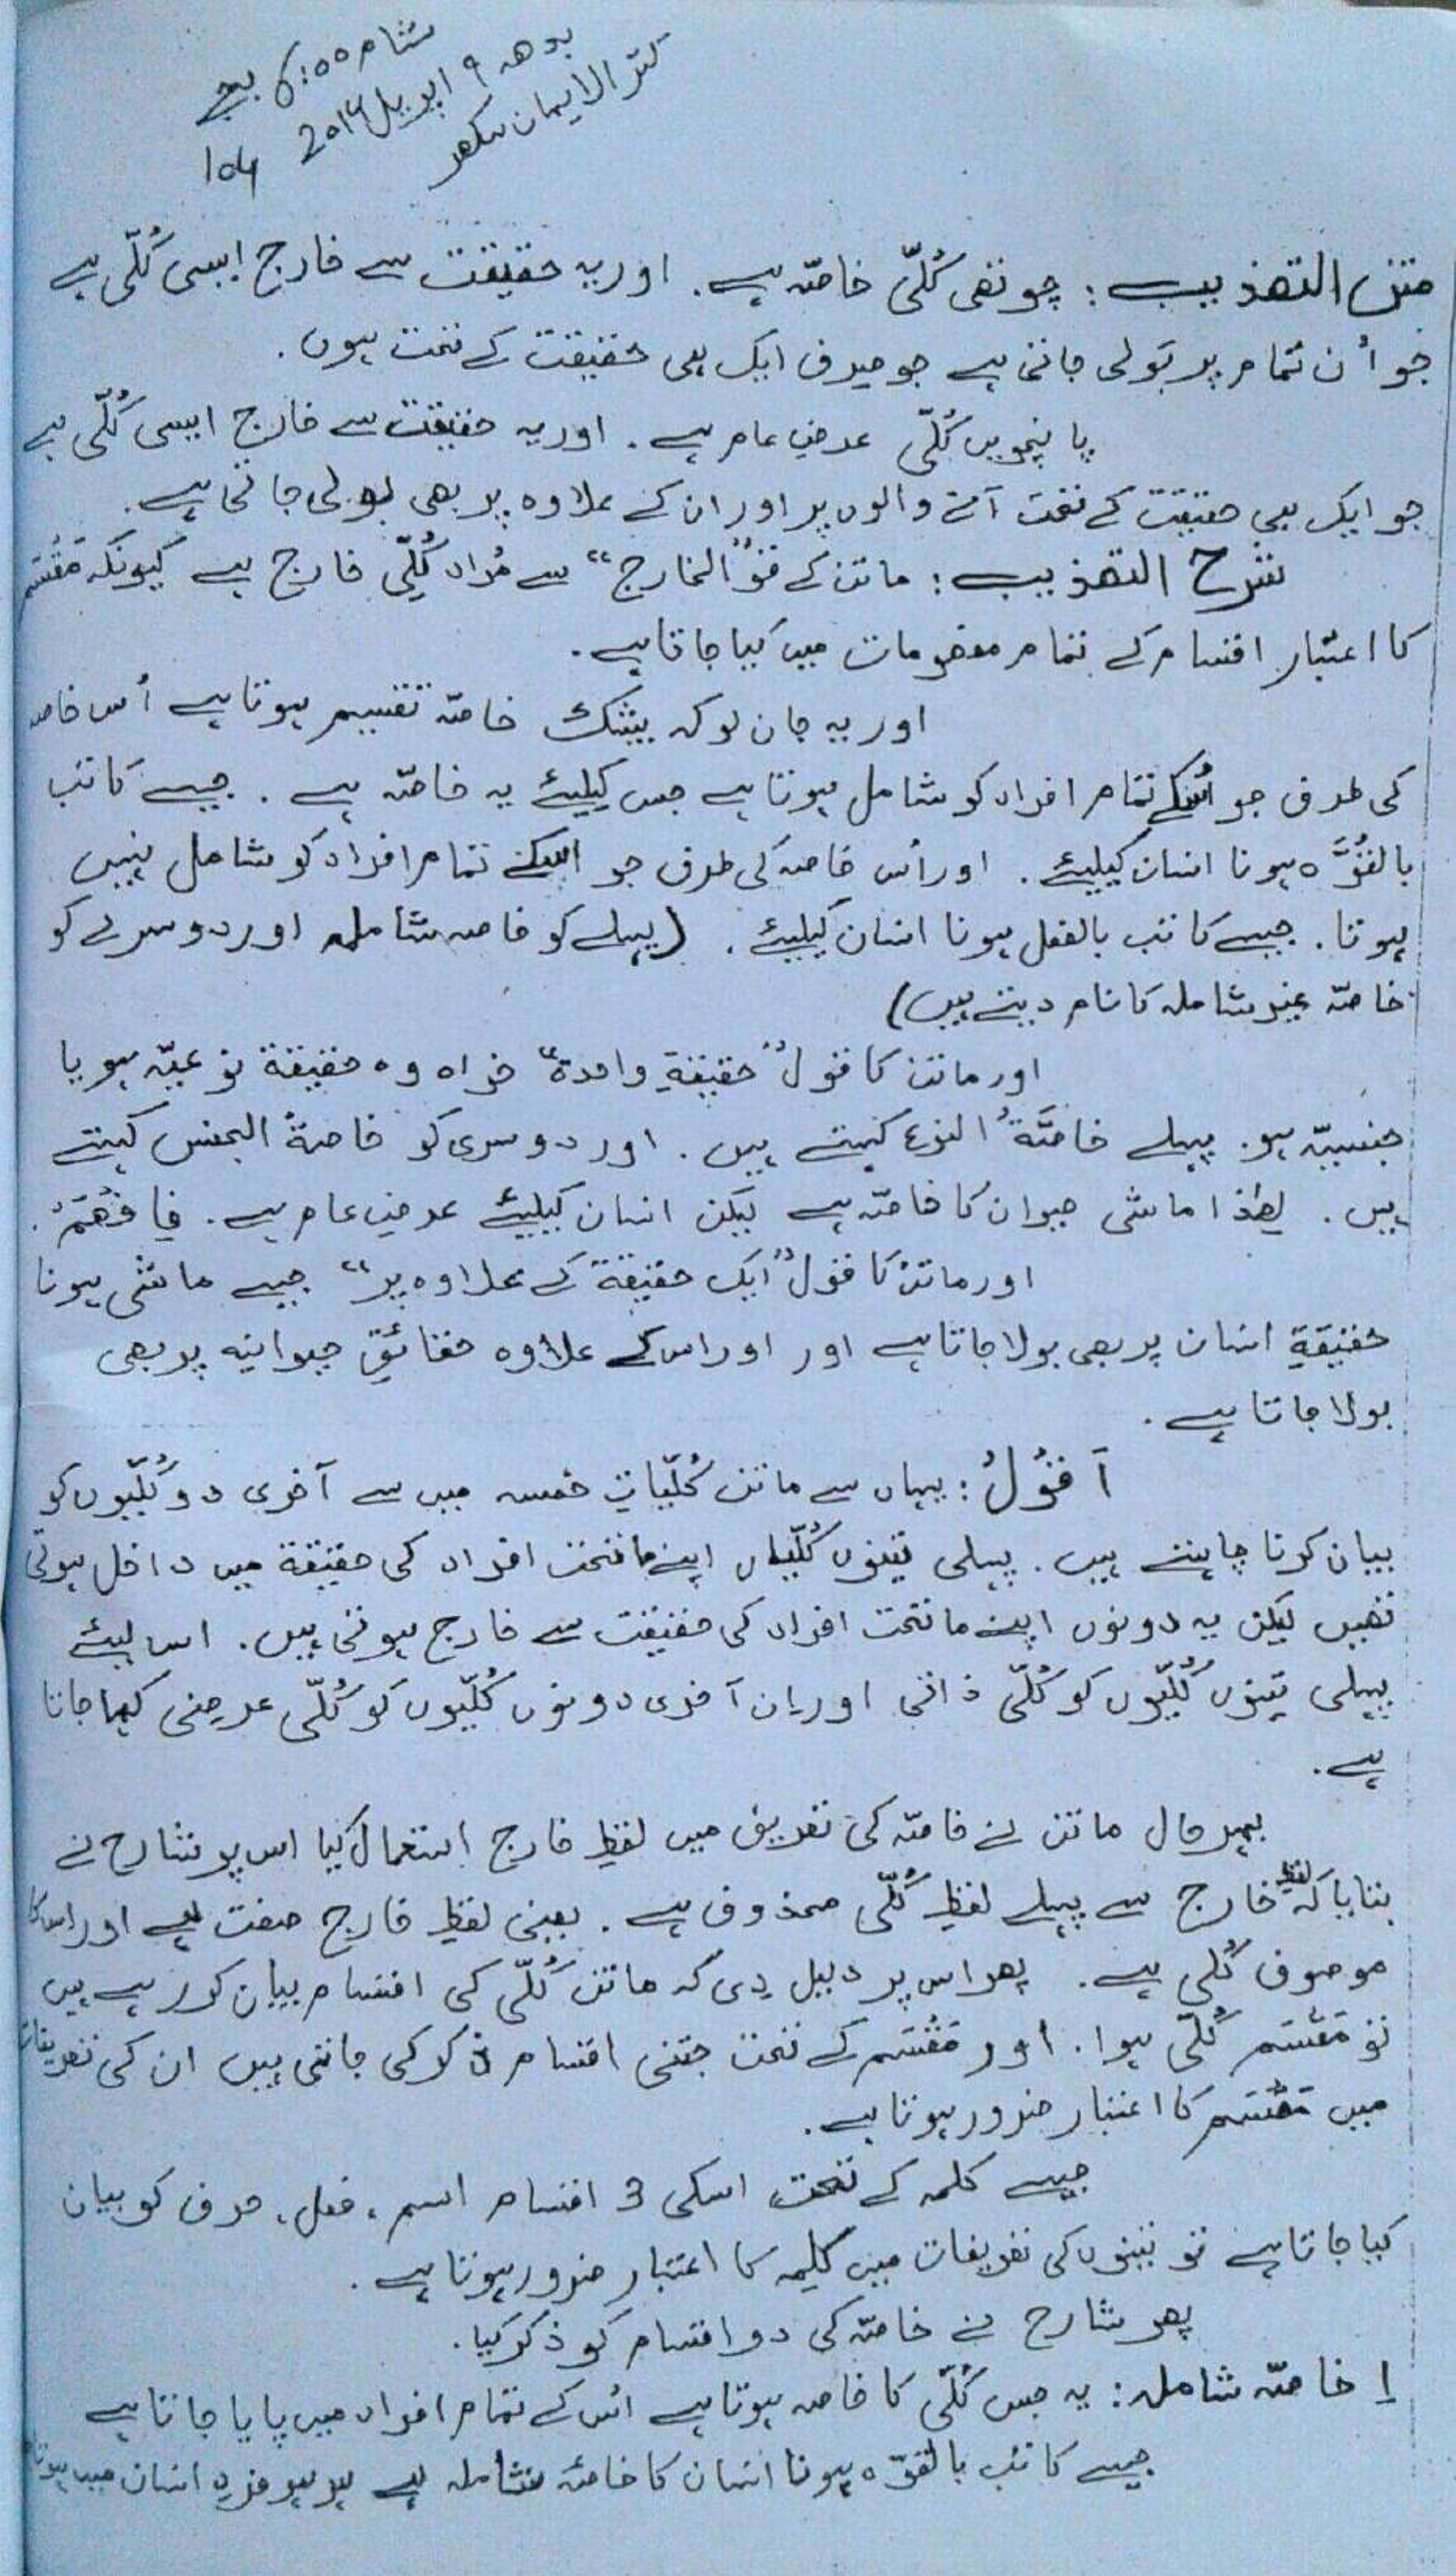 شام 6:00 بجے
بدھ ۹ اپریل 2014
کنز الایمان سکھر
104
متن التھذیب: چوتھی کُلّی خاصّہ ہے. اور یہ حقیقت سے خارج ایسی کُلّی ہے
جو اُن تمام پر بَولی جاتی ہے جو صِرف ایک ہی حقیقت کے تحت ہوں.
پانچویں کُلّی عرضِ عام ہے. اور یہ حقیقت سے خارج ایسی کُلّی ہے
جو ایک ہی حقیقت کے تحت آنے والوں پر اور ان کے علاوہ پر بھی بولی جاتی ہے.
شرح التھذیب: ماتن کے قول "الخارج" سے مُراد کُلِّی خارج ہے کیونکہ مَقْسَم
کا اعتبار اقسام کے تمام مفھومات میں کیا جاتا ہے.
اور یہ جان لو کہ بیشک خاصّہ تقسیم ہوتا ہے اُس خاصہ
کی طرف جو اُسکے تمام افراد کو شامل ہوتا ہے جس کیلیئے یہ خاصّہ ہے. جیسے کاتب
بالقُوَّہ ہونا انسان کیلیئے. اور اُس خاصہ کی طرف جو اسکے تمام افراد کو شامل نہیں
ہوتا. جیسے کاتب بالفعل ہونا انسان کیلیئے. (پہلے کو خاصہ شاملہ اور دوسرے کو
خاصّہ غیر شاملہ کا نام دیتے ہیں)
اور ماتن کا قول "حقیقةِ واحدة" خواہ وہ حقیقة نوعیّہ ہو یا
جنسیّہ ہو. پہلے خاصَّةُ النوع کہتے ہیں. اور دوسری کو خاصةُ الجنس کہتے
ہیں. لھٰذا ماشی حیوان کا خاصّہ ہے لیکن انسان کیلیئے عرضِ عام ہے. فَافْھَمْ.
اور ماتن کا قول "ایک حقیقة کے علاوہ پر" جیسے ماشی ہونا
حقیقةِ انسان پر بھی بولا جاتا ہے اور اور اس کے علاوہ حقائقِ حیوانیہ پر بھی
بولا جاتا ہے.
اَقُوْلُ: یہاں سے ماتن کُلّیاتِ خمسہ میں سے آخری دو کُلّیوں کو
بیان کرنا چاہتے ہیں. پہلی تینوں کُلّیاں اپنے ماتحت افراد کی حقیقة میں داخل ہوتی
تھیں لیکن یہ دونوں اپنے ماتحت افراد کی حقیقت سے خارج ہوتی ہیں. اس لیئے
پہلی تینوں کُلِّیوں کو کُلّی ذاتی اور اِن آخری دونوں کُلّیوں کو کُلّی عرضی کہا جاتا
ہے.
بہر حال ماتن نے خاصّہ کی تعریف میں لفظِ خارج استعمال کیا اس پر شارح نے
بتایا کہ لفظِ خارج سے پہلے لفظِ کُلّی محذوف ہے. یعنی لفظِ خارج صفت ہے اور اس کا
موصوف کُلی ہے. پھر اس پر دلیل دِی کہ ماتن کُلّی کی اقسام بیان کر رہے ہیں
تو مَقْسَم کُلّی ہوا. اور مَقْسَم کے تحت جتنی اقسام ذکر کی جاتی ہیں ان کی تعریفات
میں مَقْسَم کا اعتبار ضرور ہوتا ہے.
جیسے کلمہ کے تحت اسکی 3 اقسام اسم، فعل، حرف کو بیان
کیا جاتا ہے تو تینوں کی تعریفات میں کلِمہ کا اعتبار ضرور ہوتا ہے.
پھر شارح نے خاصّہ کی دو اقسام کو ذکر کیا.
1 خاصّہ شاملہ: یہ جس کُلّی کا خاصہ ہوتا ہے اُس کے تمام افراد میں پایا جاتا ہے
جیسے کاتب بالقوّہ ہونا انسان کا خاصّہ شاملہ ہے ہر ہر فردِ انسان میں ہوتا